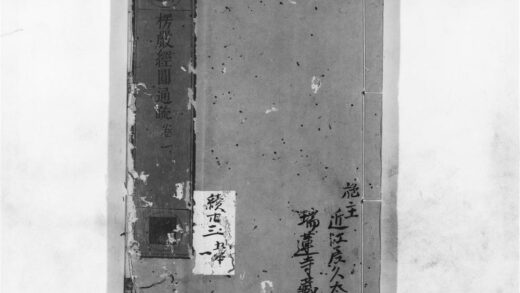 施主
近江辰久太
瑞蓮寺藏
續百三
楞嚴經圓通疏卷一